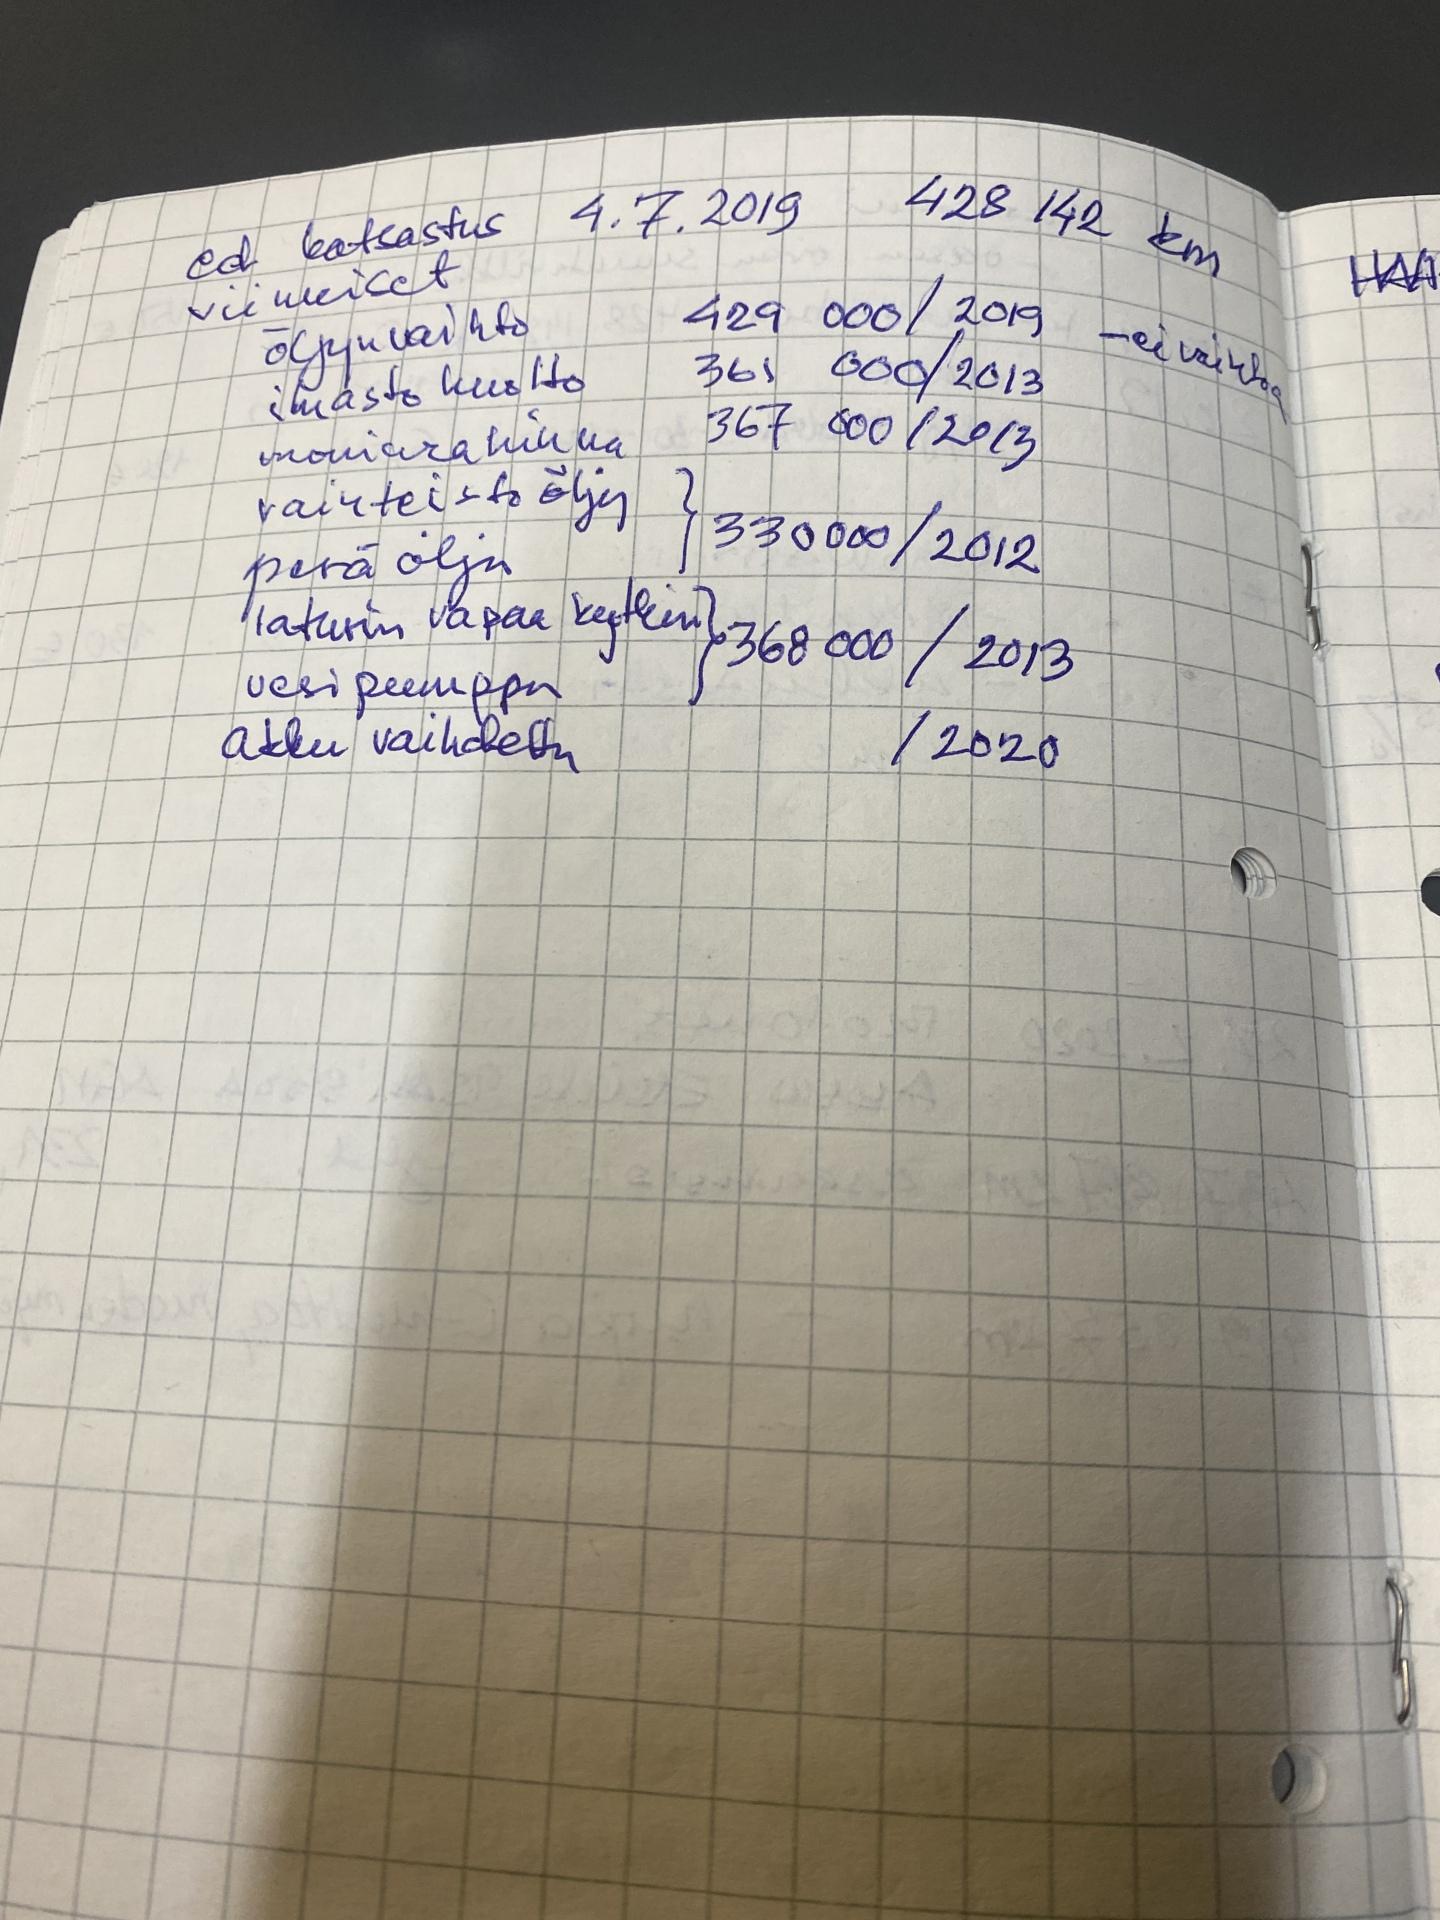 ed. katsastus 4.7.2019 428 142 km
viimeiset
öljynvaihto 429 000/2019 - ei vaihtoa
ilmastohuolto 361 000/2013
moniurahihna 367 000/2013
vaihteistoöljy
perä öljy } 330000/2012
laturin vapaa kytkin
vesipumppu } 368 000 / 2013
Akku vaihdettu /2020